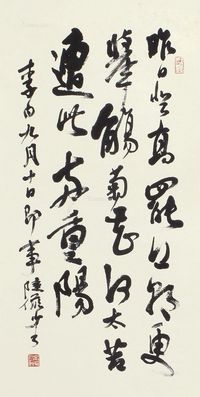 昨日登高罷今朝更
舉觴菊花何太苦
遭此兩重陽
李白九月十日即事 陸儼少